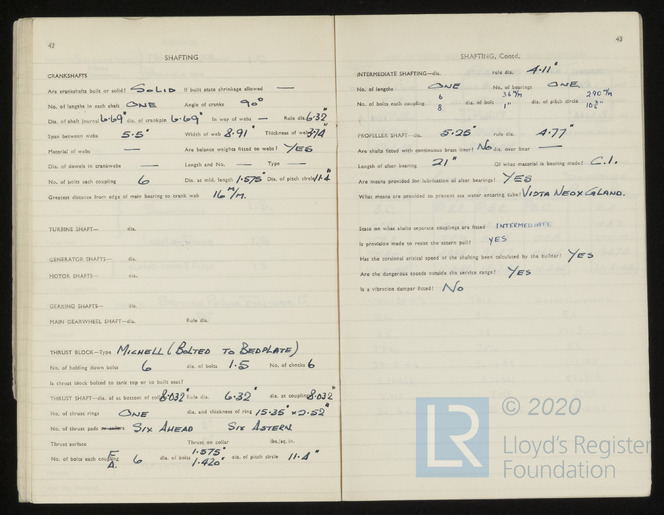 42
SHAFTING
CRANKSHAFTS
Are crankshafts built or solid? SOLID If built state shrinkage allowed —
No. of lengths in each shaft ONE Angle of cranks 90°
Dia. of shaft journal 6.69" dia. of crankpin 6.69" In way of webs — Rule dia. 6.32"
Span between webs 5.5" Width of web 8.91" Thickness of web
Material of webs — Are balance weights fitted to webs? YES
Dia. of dowels in crankwebs — Length and No. — Type —
No. of bolts each coupling 6 Dia. at mid. length 1.575" Dia. of pitch circle 11.4"
Greatest distance from edge of main bearing to crank web 16 M/M.
TURBINE SHAFT— dia.
GENERATOR SHAFTS— dia.
MOTOR SHAFTS— dia.
GEARING SHAFTS— dia.
MAIN GEARWHEEL SHAFT—dia. Rule dia.
THRUST BLOCK—Type MICHELL (BOLTED TO BEDPLATE)
No. of holding down bolts 6 dia. of bolts 1.5 No. of chocks 6
Is thrust block bolted to tank top or to built seat?
THRUST SHAFT—dia. at bottom of collar 8.032" Rule dia. 6.32" dia. at coupling 8.032"
No. of thrust rings ONE dia. and thickness of ring 15.35" × 2.52"
No. of thrust pads SIX AHEAD SIX ASTERN
Thrust surface Thrust on collar lbs./sq. in.
No. of bolts each coupling F. A. 6 dia. of bolts 1.575" 1.420" dia. of pitch circle 11.4"
43
SHAFTING, Contd.
INTERMEDIATE SHAFTING—dia. rule dia. 4.11"
No. of lengths ONE No. of bearings ONE
No. of bolts each coupling 6 8 dia. of bolt 36 M/M 1" dia. of pitch circle 290 M/M
PROPELLER SHAFT—dia. 5.25" rule dia. 4.77"
Are shafts fitted with continuous brass liner? NO dia. over liner —
Length of after bearing 21" Of what material is bearing made? C.I.
Are means provided for lubrication of after bearings? YES
What means are provided to prevent sea water entering tube? VISTA NEOX GLAND.
State on what shafts separate couplings are fitted INTERMEDIATE
Is provision made to resist the astern pull? YES
Has the torsional critical speed of the shafting been calculated by the builder? YES
Are the dangerous speeds outside the service range? YES
Is a vibration damper fitted? NO
LR
© 2020
Lloyd's Register
Foundation